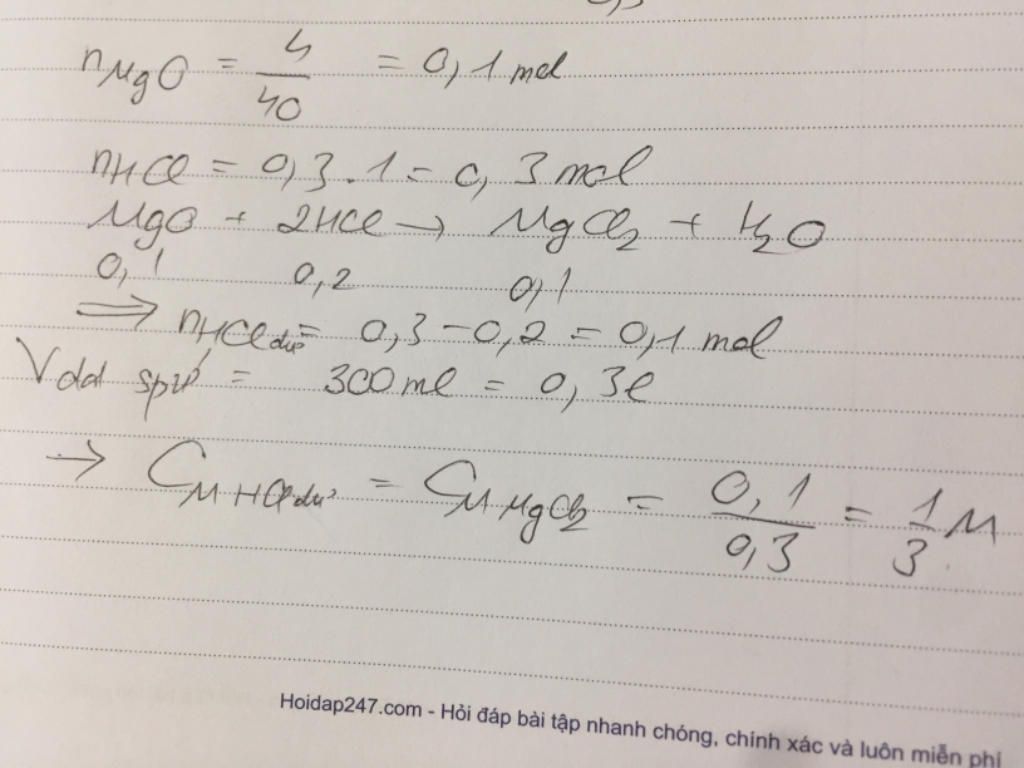 nMgO = 4/40 = 0,1 mol
nHCl = 0,3.1 = 0,3 mol
MgO + 2HCl → MgCl2 + H2O
0,1 0,2 0,1
⟹ nHCl dư = 0,3 - 0,2 = 0,1 mol
Vdd spứ = 300ml = 0,3l
→ CM HCl dư = CM MgCl2 = 0,1/0,3 = 1/3 M
Hoidap247.com - Hỏi đáp bài tập nhanh chóng, chính xác và luôn miễn phí